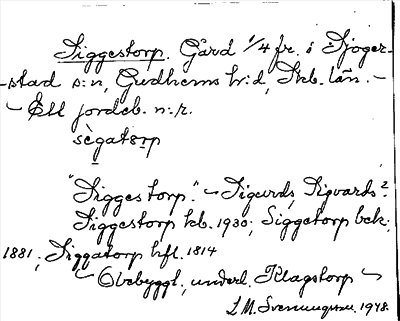 Siggestorp. Gård 1/4 fr. i Sjoger-
-stad s:n, Gudhems h:d, Skb. län. -
- Ett jordeb. n:r.
sègatɵrp
"Siggestorp." - Sigurds, Sigvards?
Siggestorp kb. 1930; Siggetorp bek.
1881; Siggatorp hfl. 1814
- Obebyggt, underl. Klagstorp -
L.M. Svenungsson. 1948.